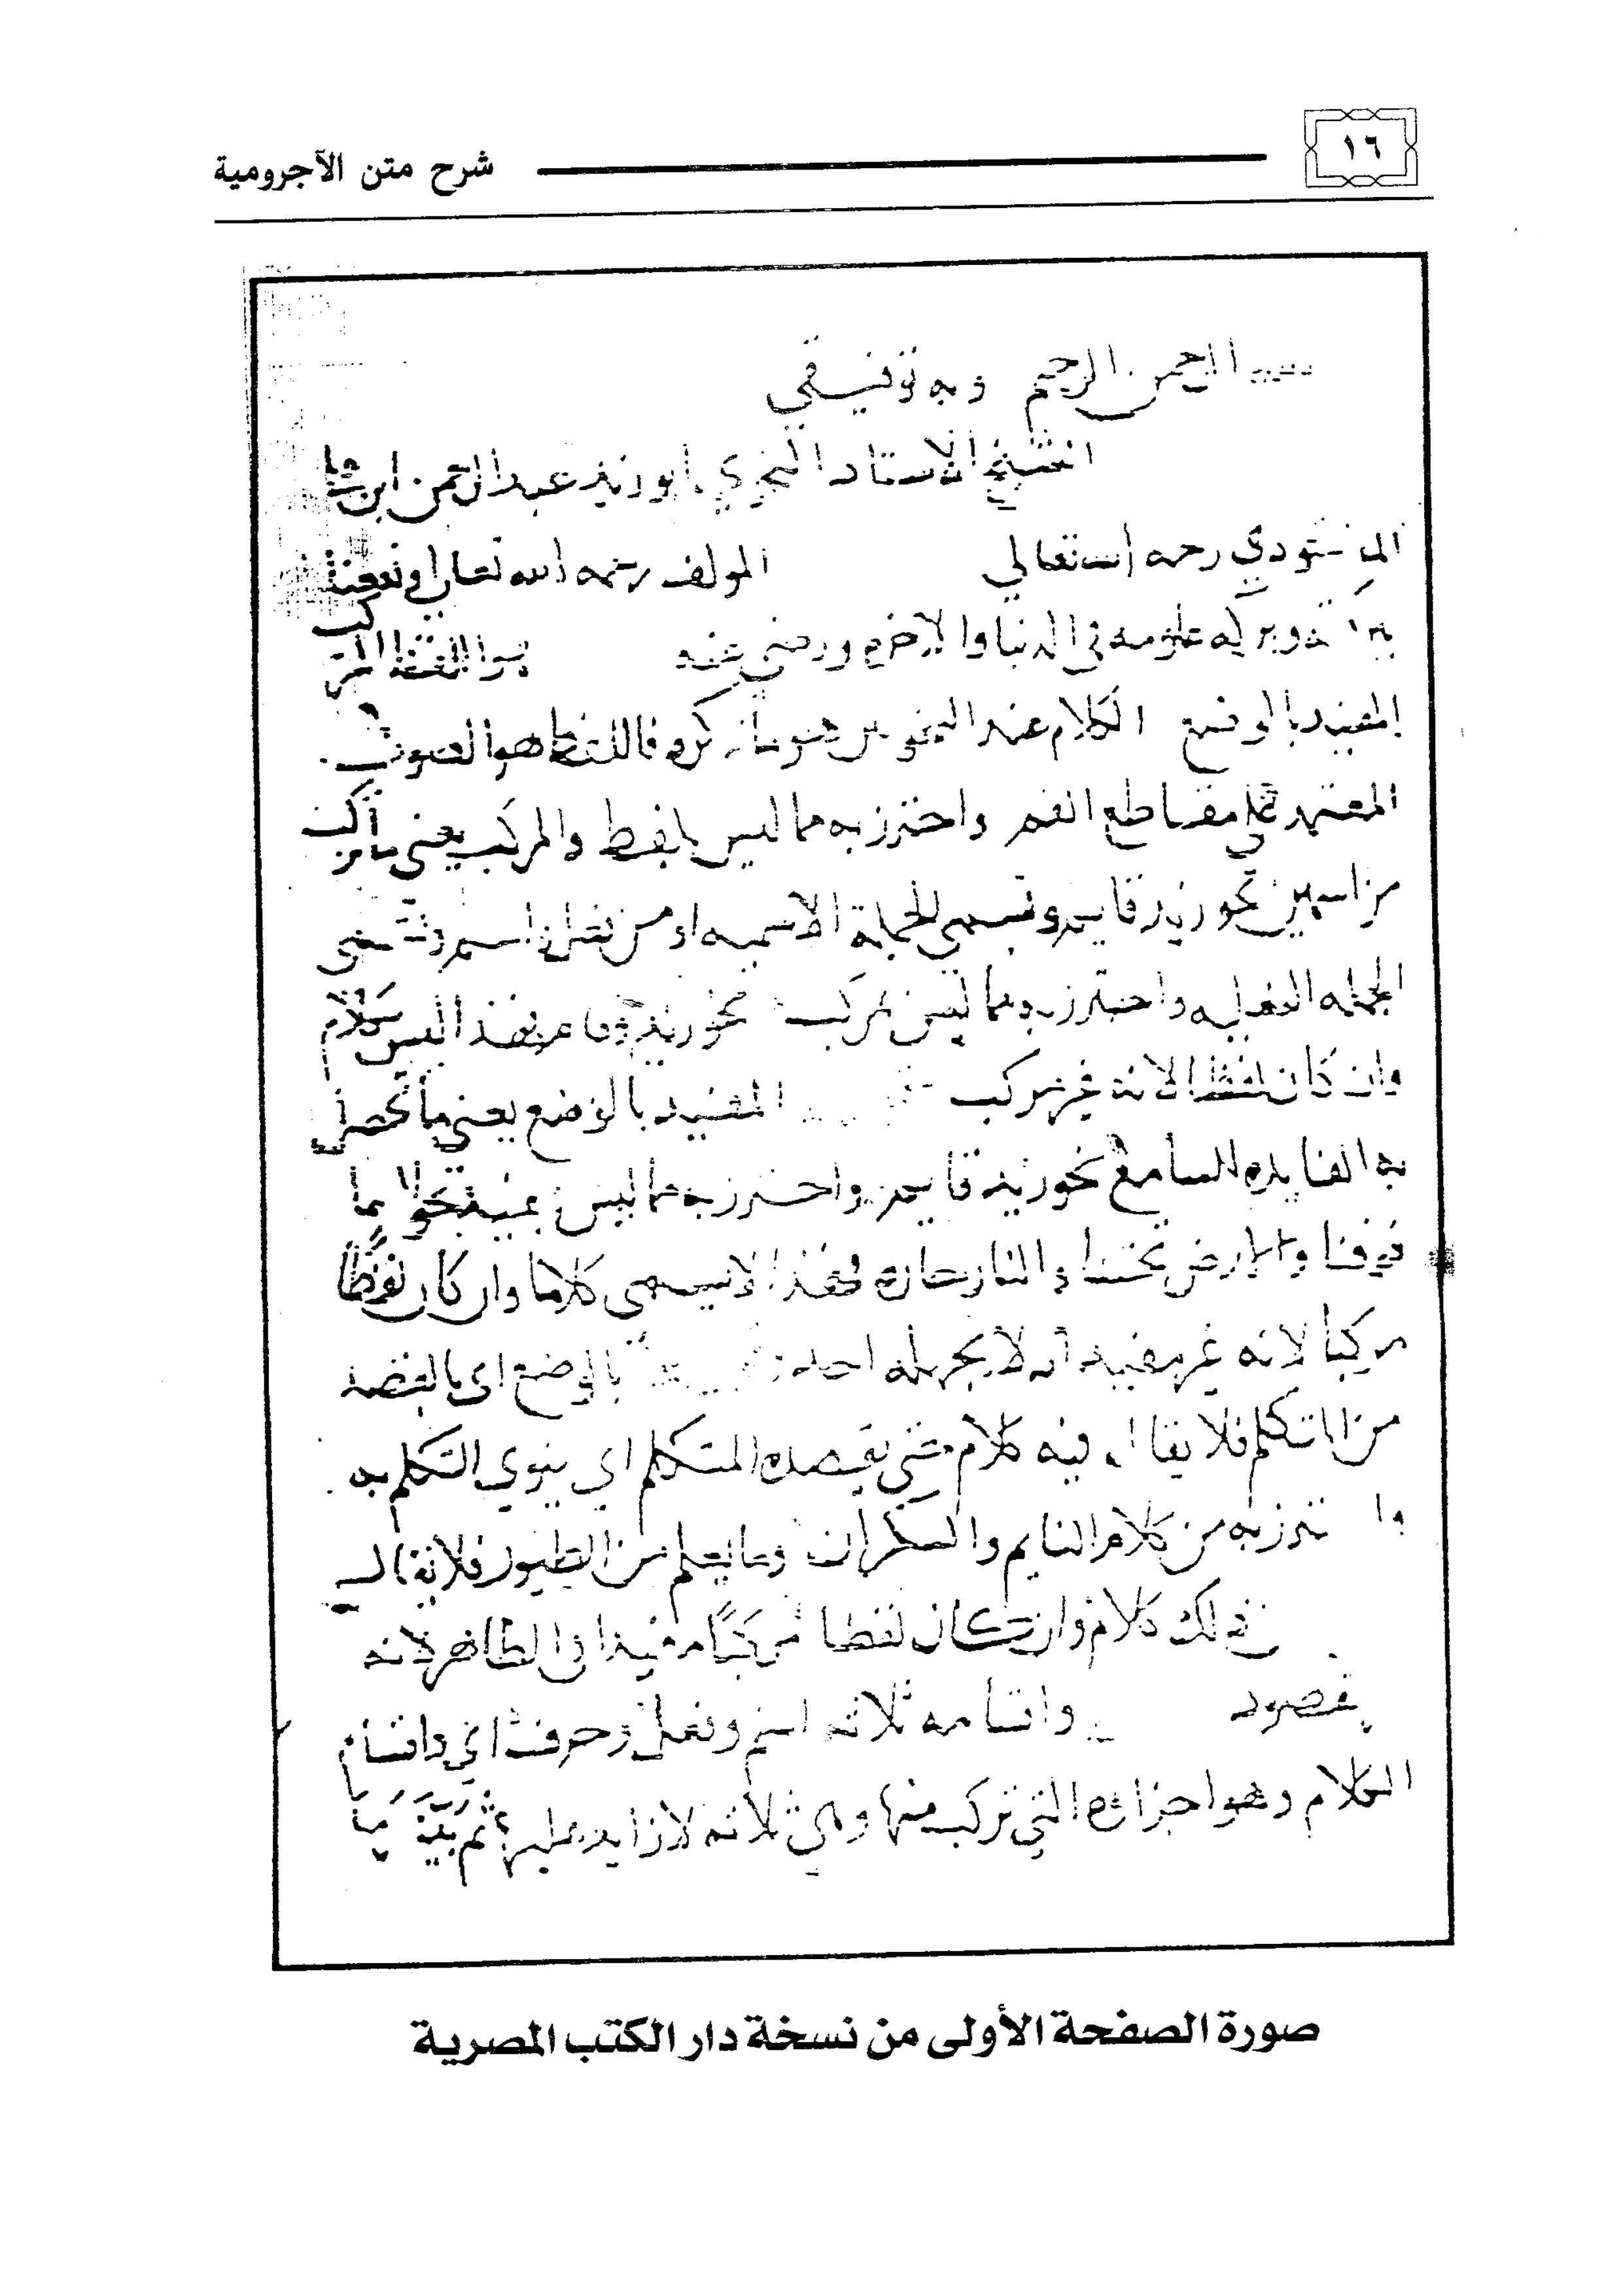 ١٦
شرح متن الآجرومية
الرحمن الرحيم وبه توفيقي
الاستاد النحوي ابو زيد عبد الرحمن ابن
رحمه الله تعالى المولف رحمه الله تعالى ونفعنا
علومه في الدنيا والاخره ورضي عنه هو اللفظ المركب
المفيد بالوضع الكلام عند النحويين هو ما ذكره فاللفظ هو الصوت
المعتمد على مقاطع الفم واحترز به مما ليس بلفظ والمركب يعني ما تركب
من اسمين نحو زيد قايم وتسمى الجملة الاسميه او من فعل واسم وتسمى
الجمله الفعليه واحترز به مما ليس بمركب نحو زيد فهذا ليس كلام
وان كان لفظا لانه غير مركب المفيد بالوضع يعني ما تحصل
به الفايده للسامع نحو زيد قايم واحترز به مما ليس بمفيد نحو السما
فوقنا والارض تحتنا والنار حاره فهذا لا يسمى كلاما وان كان لفظا
مركبا لانه غير مفيد لا يجهله احد بالوضع اي بالقصد
من المتكلم فلا يقال فيه كلام حتى يقصده المتكلم اي ينوي التكلم به
به من كلام النايم والسكران وما يعلم من الطيور فلا يقال
ذلك كلام وان كان لفظا مركبا مفيدا في الظاهر لانه
مقصود واقسامه ثلاثه اسم وفعل وحرف اي واقسام
الكلام وهو اجزاؤه التي تركب منها وهي ثلاثه لا زايد عليها ثم
صورة الصفحة الأولى من نسخة دار الكتب المصرية